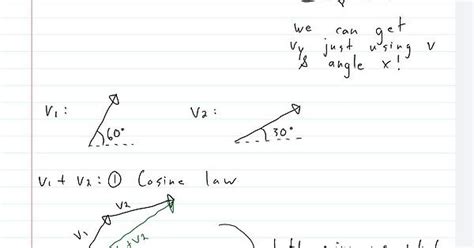 we can get
vy just using v
& angle x!
V1: 60° V2: 30°
V1 + V2: ① Cosine law
V2
V1
+ V2